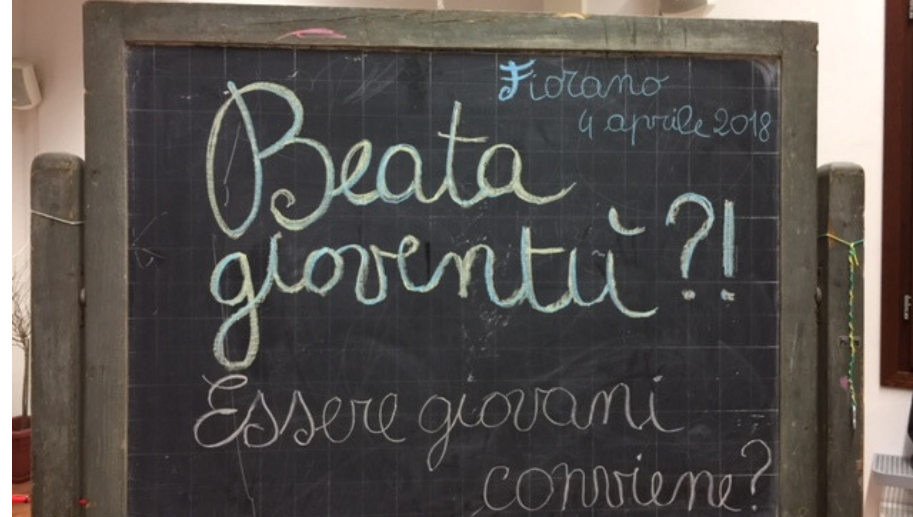 Fiorano
4 aprile 2018
Beata
gioventù?!
Essere giovani
conviene?